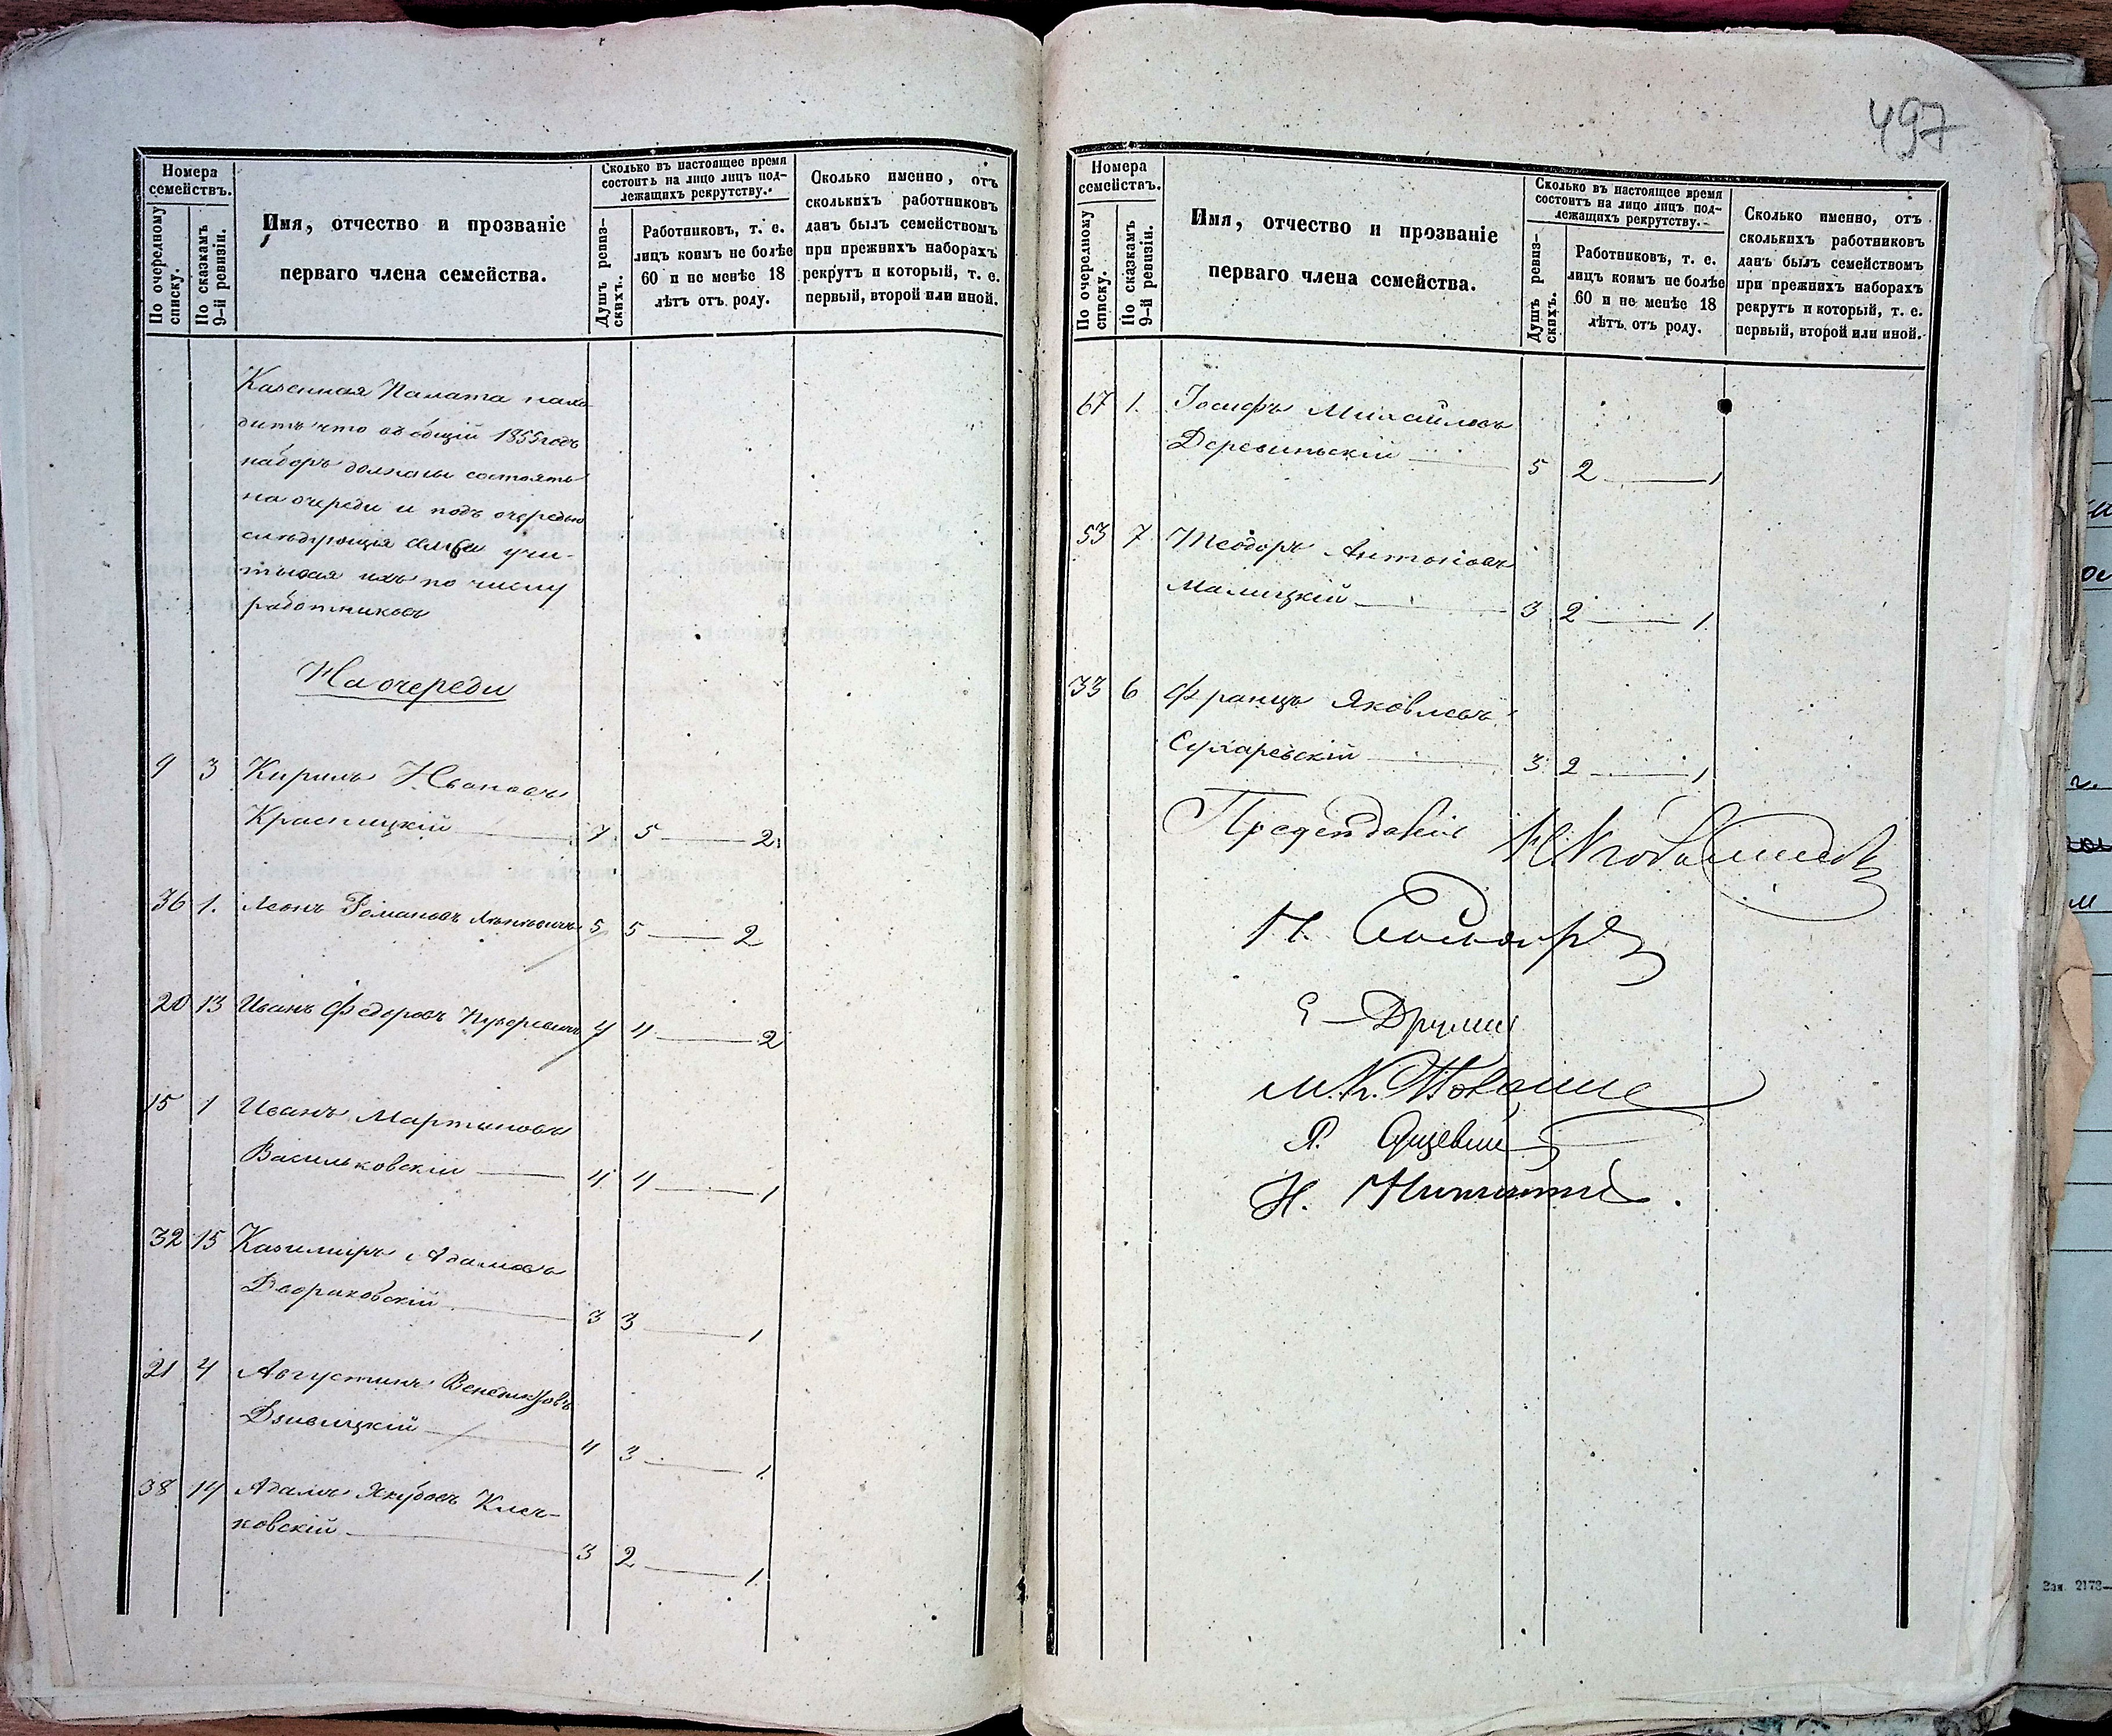 497
Номера
семействъ.
По очередному
списку.
По сказкамъ
9-й ревизіи.
Имя, отчество и прозваніе
перваго члена семейства.
Сколько въ настоящее время
состоитъ на лицо лицъ под-
лежащихъ рекрутству.
Душъ ревиз-
скихъ.
Работниковъ, т. е.
лицъ коимъ не болѣе
60 и не менѣе 18
лѣтъ отъ роду.
Сколько именно, отъ
сколькихъ работниковъ
данъ былъ семействомъ
при прежнихъ наборахъ
рекрутъ и который, т. е.
первый, второй или иной.
Казенная Палата нахо
дитъ что въ общій 1855 годъ
наборъ должны состоять
на очереди и подъ очередью
слѣдующія семьи учи-
тывая ихъ по числу
работниковъ
На очереди
9 3 Кирилъ Ивановъ
Красницкій 7 5 2.
36 1. Леонъ Романовъ 5 5 2
20 13 Иванъ Федоровъ 4 4 2
15 1 Иванъ Мартиновъ
Васильковскій 4 4 1
32 15 Казимиръ Адамовъ
Двораковскій 3 3 1
21 4 Августинъ Венедиктовъ
Дзивицкій 4 3 1
38 14 Адамъ Якубовъ Клеч-
ковскій 3 2 1.
Номера
семействъ.
По очередному
списку.
По сказкамъ
9-й ревизіи.
Имя, отчество и прозваніе
перваго члена семейства.
Сколько въ настоящее время
состоитъ на лицо лицъ под-
лежащихъ рекрутству.
Душъ ревиз-
скихъ.
Работниковъ, т. е.
лицъ коимъ не болѣе
60 и не менѣе 18
лѣтъ отъ роду.
Сколько именно, отъ
сколькихъ работниковъ
данъ былъ семействомъ
при прежнихъ наборахъ
рекрутъ и который, т. е.
первый, второй или иной.
67 1. Іосифъ Михайловъ
Деревинскій 5 2 1
53 7 Теодоръ Антоновъ
Малицкій 3 2 1.
33 6 Францъ Яковлевъ
Сухаревскій 3 2 1
Н.
М. К.
Н.
Зак. 2173—